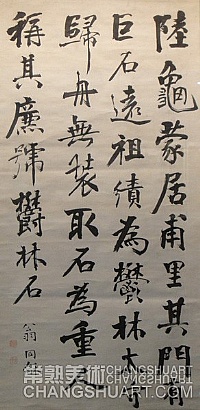 陸龜蒙居甫里其門有
巨石遠祖績為鬱林太守
歸舟無裝取石為重人
稱其廉號鬱林石
翁同龢
常熟美術 CHANGSHUART
CHANGSHUART.COM